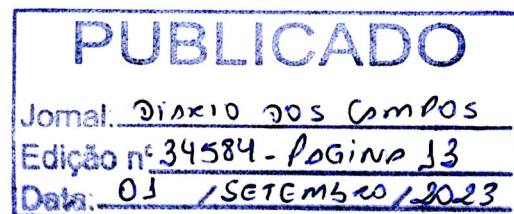 PUBLICADO
Jornal: DIARIO DOS CAMPOS
Edição nº 34584 - PAGINA 13
Data: 01 / SETEMBRO / 2023